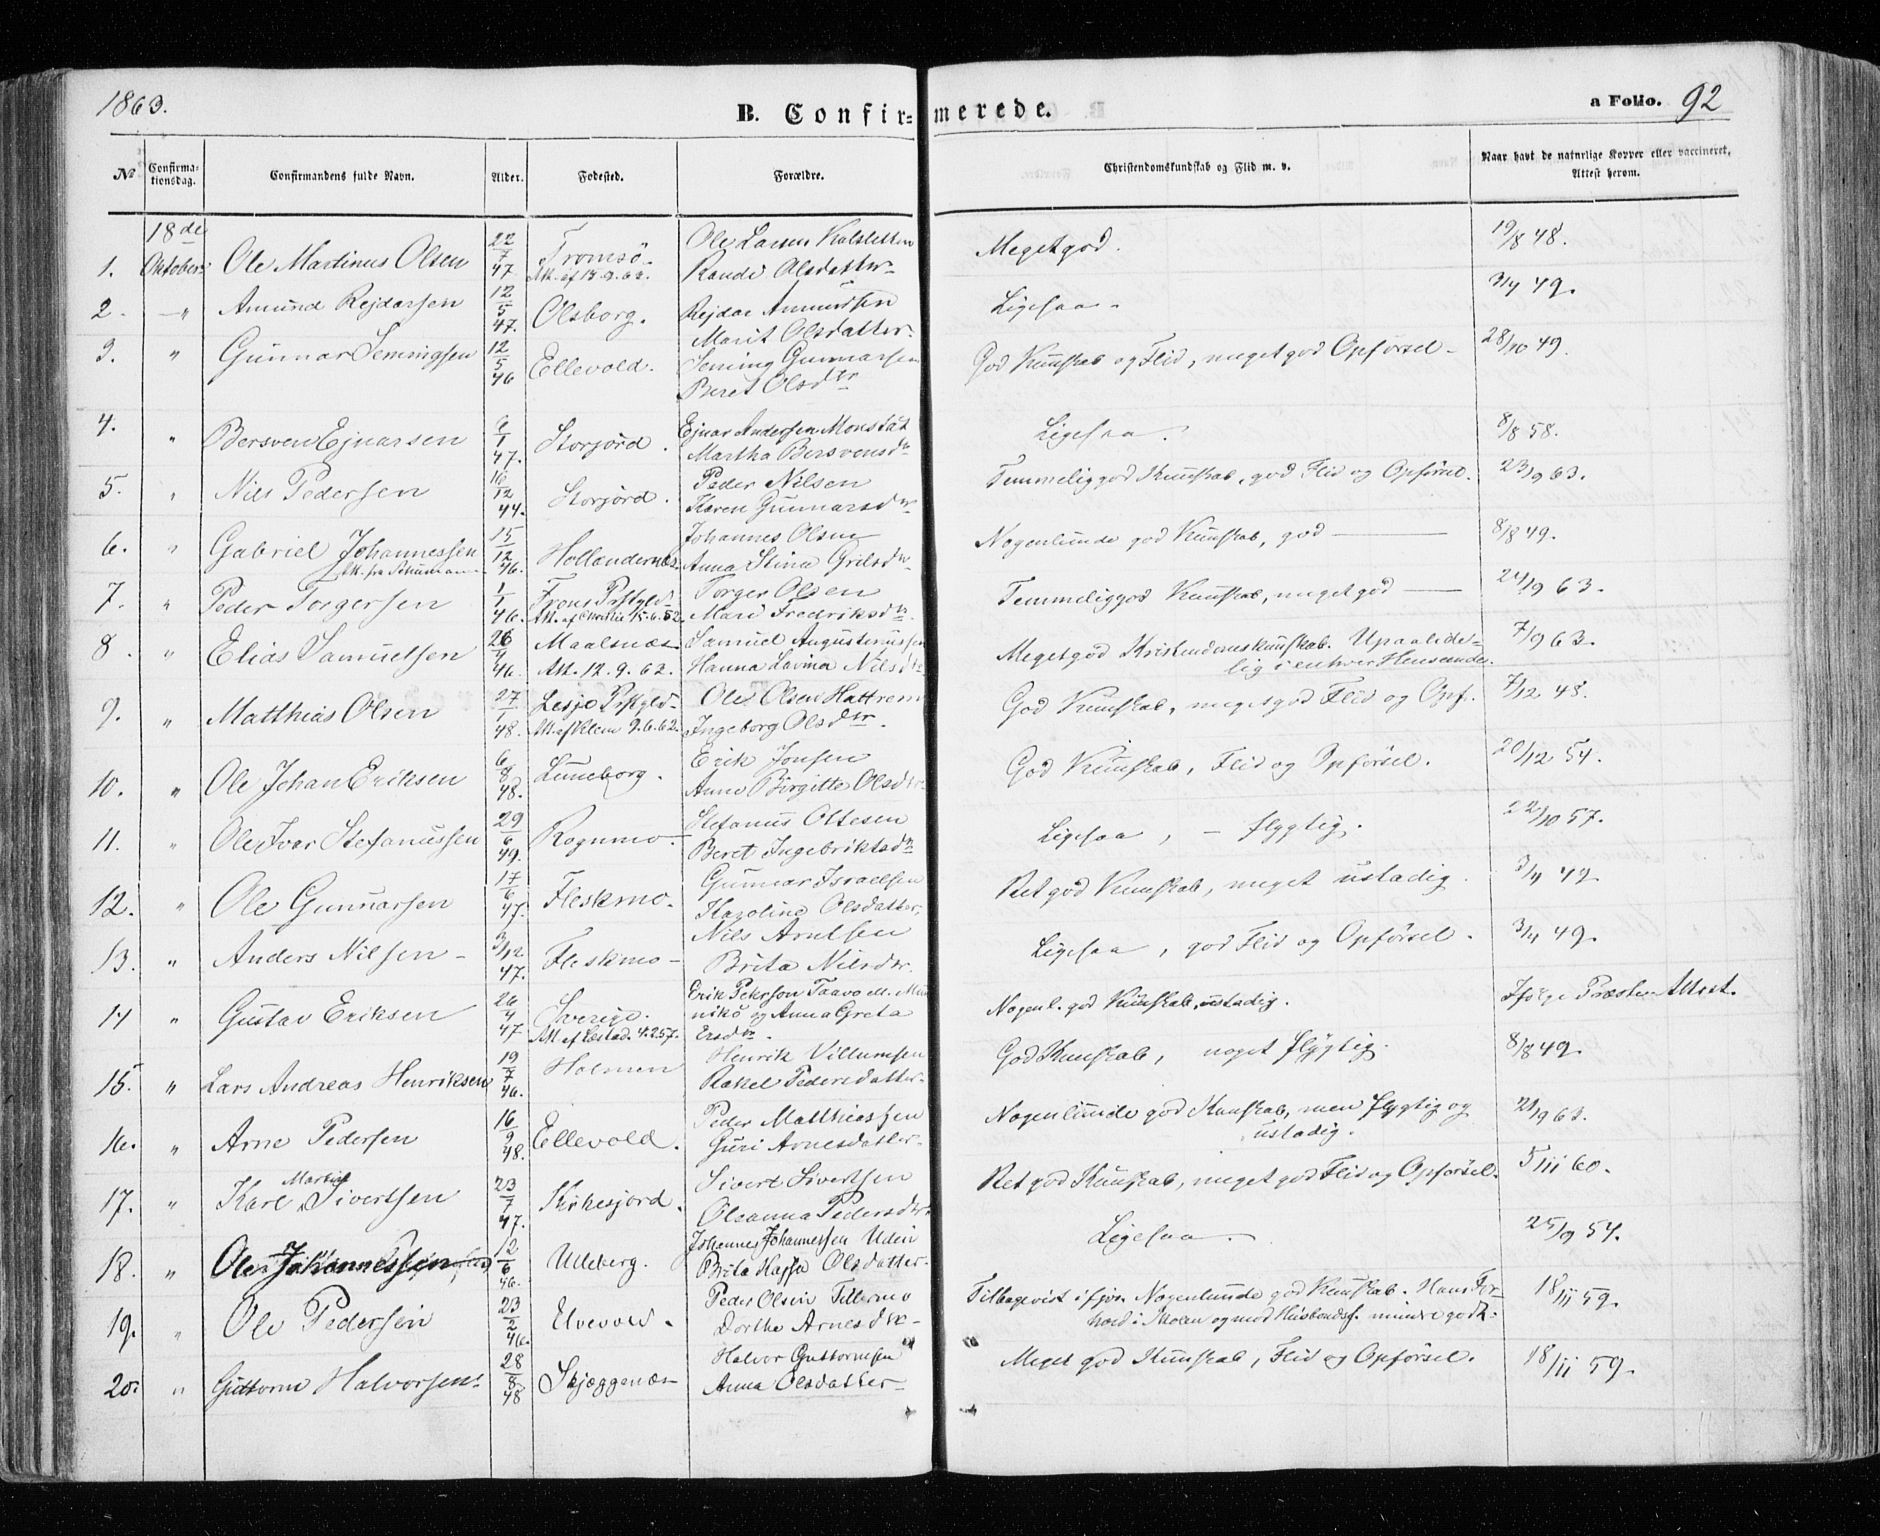 1863.
B. Confir=merede.
a Folio. 92
No
Confirma-tionsdag.
Confirmandens fulde Navn.
Alder.
Fødested.
Forældre.
Christendomskundskab og Flid m. v.
Naar havt de naturlige Kopper eller vaccineret, Attest herom.
18de Oktober
1. Ole Martinus Olsen 22/7 47 Tromsö. Att. af 13.9.62. Ole Larsen Randi Olsdatter Meget god. 19/8 48.
2. " Amund Rejdarsen 12/5 47. Olsborg. Rejdar Amundsen Marit Olsdatter. Ligesaa. 3/4 49.
3. " Gunnar Semingsen 12/5 46 Ellevold. Seming Gunnarsen Beret Olsdtr God Kunskab og Flid, meget god Opførsel. 28/10 49.
4. " Bersven Ejnarsen 6/1 47. Storjörd. Ejnar Andersen Monstad Martha Bersvensdtr Ligesaa. 8/8 58.
5. " Nils Pedersen 16/12 44. Storjörd. Peder Nilsen Karen Gunnarsdtr Temmelig god Kunskab, god Flid og Opførsel. 23/9 63.
6. " Gabriel Johannessen 15/12 46. Hollandernæs Johannes Olsen Anna Stina Grilsdtr Nogenlunde god Kunskab, god — 8/8 49.
7. " Peder Torgersen 1/1 46. Frons Prstgld. Att. af Christie 15.6.52. Torger Olsen Mari Fredriksdtr. Temmelig god Kunskab, meget god — 24/9 63.
8. " Elias Samuelsen 26/4 46. Maalsnæs Att. 12.9.62. Samuel Augustinussen Hanna Lavina Nilsdtr Meget god Kristendomskunskab. Upaalide-lig i enhver Henseende. 7/9 63.
9. " Matthias Olsen 27/1 48. Lesje Prstgld. Att. af Klem 9.6.62. Ole Olsen Hattrem Ingeborg Olsdtr. God Kunskab, meget god Flid og Opf. 7/12 48.
10. " Ole Johan Eriksen 6/8 48. Luneborg. Erik Jonsen Anne Birgitte Olsdtr God Kunskab, Flid og Opførsel. 20/12 54.
11. " Ole Ivar Stefanussen 29/6 49. Rognmo Stefanus Ottesen Beret Ingebriktsdtr Ligesaa, — flygtig. 22/10 57.
12. " Ole Gunnarsen 17/6 47. Fleskmo. Gunnar Israelsen Karoline Olsdatter. Ret god Kunskab, meget ustadig. 3/4 49
13. " Anders Nilsen 3/12 47. Fleskmo Nils Arntsen Brita Nilsdtr. Ligesaa, god Flid og Opførsel. 3/4 49.
14 " Gustav Eriksen 26/4 47 Sverige. Att. af Læstad. 4.2.57. Erik Pekrson Taavo M. Muo nikö og Anna Greta Ersdtr. Nogenl. god Kunskab, ustadig. Ifølge Præsten Attest.
15. " Lars Andreas Henriksen 19/7 46. Holmen Henrik Villumsen Rakel Pedersdatter God Kunskab, noget flygtig. 8/8 49.
16. " Arne Pedersen 16/9 48. Ellevold. Peder Matthiassen Guri Arnesdatter Nogenlunde god Kunskab, men flygtig og ustadig. 21/9 63.
17. " Karl Martin Sivertsen 23/7 47. Kirkesjord. Sivert Sivertsen Oleanna Pedersdtr Ret god Kunskab, meget god Flid og Opførsel. 5/11 60.
18. " Ole Johannessen 12/6 46. Uleberg. Johannes Johannessen Uden Brita Hassa Olsdatter Ligesaa. 25/9 54.
19. " Ole Pedersen 23/2 46. Elvevold. Peder Olsen Tillermo Dorthe Arnesdtr Tilbagevist ifjor. Nogenlunde god Kunskab. Hans For-hold i Skolen og mod Husbondsf. mindre godt. 18/11 59.
20. " Guttorm Halvorsen. 28/8 48 Skjæggenæs Halvor Guttormsen Anna Olsdatter Meget god Kunskab, Flid og Opførsel. 18/11 59.